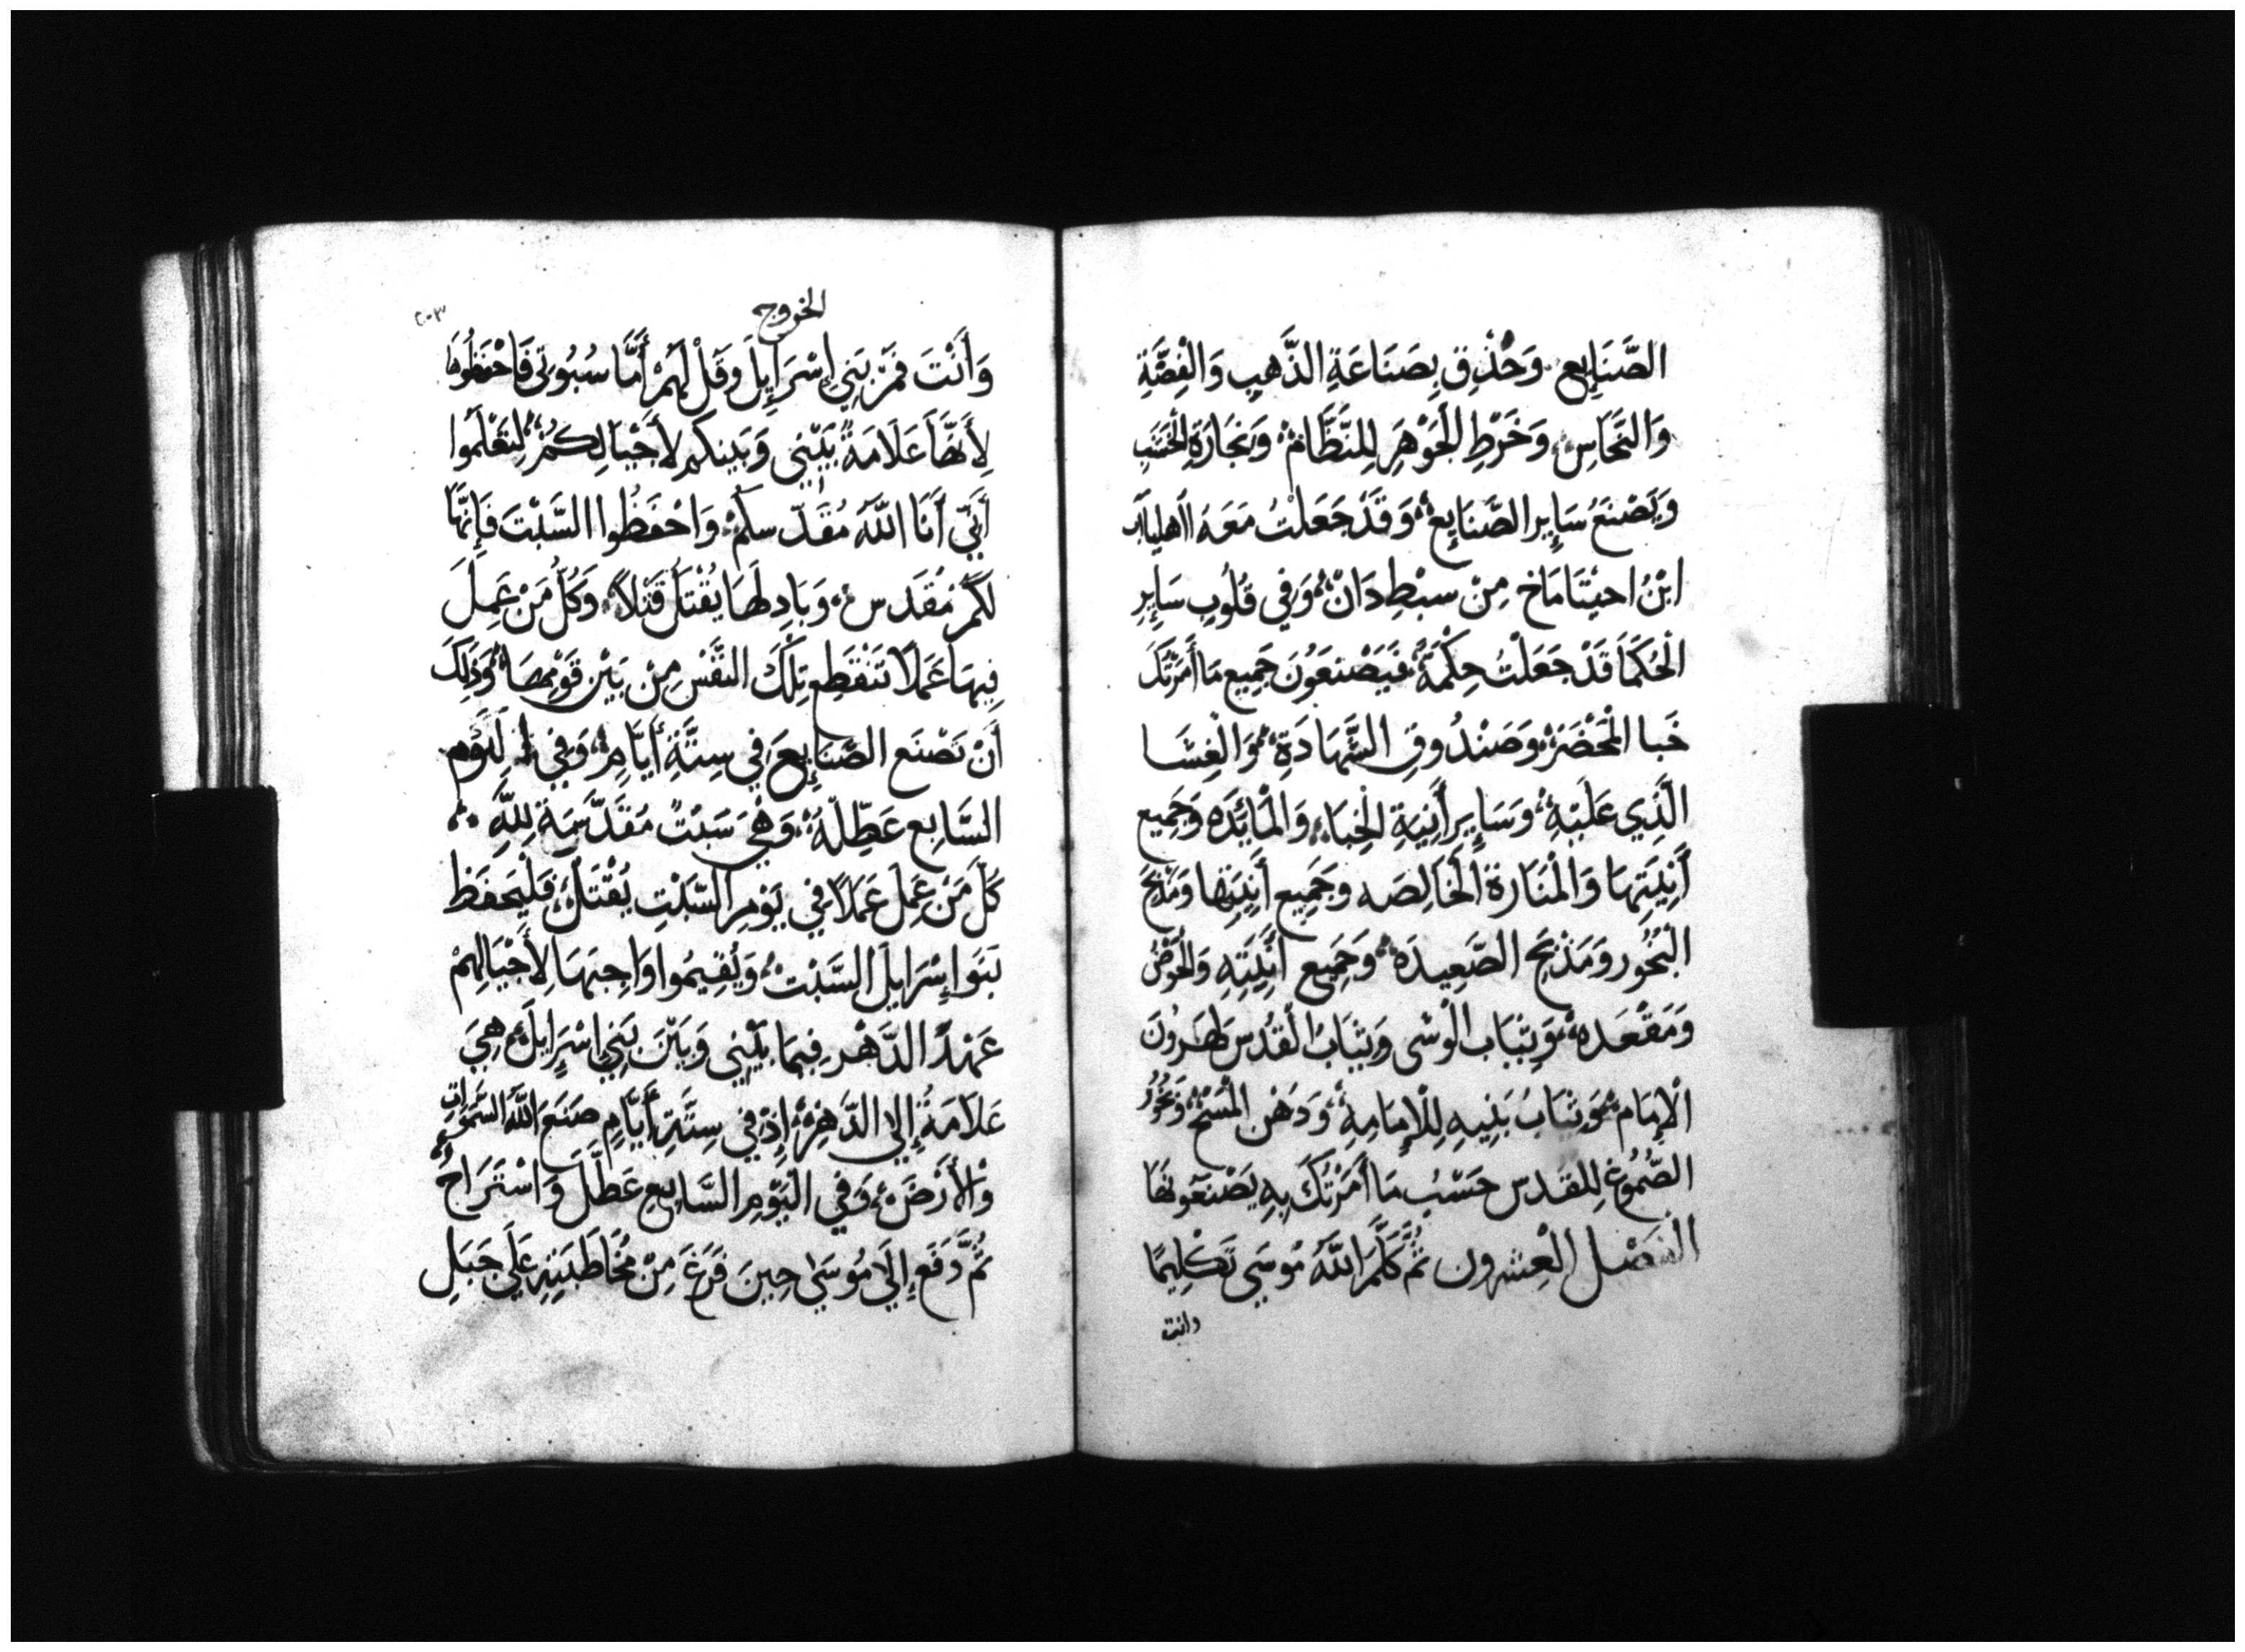 الصَّنَايِع. وَحُذْقٍ بِصَنَاعَةِ الذَّهبِ وَالْفِضَّةِ
وَالنحَاسِ، وَخَرْطِ الجَوْهَرِ لِلنَّظَامْ، وَنجَارَةِ الخَشَبِ
وَيَصْنَعُ سَايِر الصَّنَايِعْ، وَقَدْ جَعَلْتُ مَعَهُ اهليابَ
ابْنُ احيْثَامَاخ مِنْ سبْطِ دَانْ، وَفي قُلُوبِ سَايِرِ
الْحُكَمَا قَدْ جَعَلْتُ حِكْمَةً، فَيَصْنَعَوُنَ جَمِيع مَا أَمَرْتُكَ
خَبا الْمَحْضَرْ، وَصَنْدُوقِ الشَّهَادَةِ، وَالْغِشَا
الَّذِي عَلَيْهِ، وَسَايِر أَنِيَةِ الْخِبَاءِ، وَالْمَائِدَه وَجَمِيع
أَنِيَتِهَا وَالْمَنَارَة الْخَالِصَه وجَمِيع أَنِيَتِها وَمَذْبَحَ
الْبُخُور وَمَذْبَح الصَّعِيدَهْ، وَجَمِيع أَنِيَتِهِ وَالْحَوْضُ
وَمَقْعَدهْ، وَثِيَاب الْوشى وَثيَابُ الْقُدُسِ لِهَرُونَ
الْإِمَامْ، وَثِيَابُ بَنِيهِ لِلْإِمَامِهْ، وَدَهْن الْمَسْحْ، وَبَخُورُ
الصُّمُوغِ لِلمقَدس حَسْبُ مَا أَمَرْتُكَ بِهِ يَصْنَعَونَهَا
الفَصْل الْعِشرون ثُمَّ كَلَّمَ اللَّهُ مُوسَى تَكْلِيمًا
وانت
الخروج
٢٠٣
وَأَنْتَ فَمُرْ بَنِي إِسْرَايِلَ وَقَلْ لَهَمْ أَمَّا سُبُوتى فَاحْفَظُوهَا
لِأَنَّهَا عَلَامَةٌ بَيْنِي وَبَينكم لأَجْيَالِكمُ، لِتَعْلَمُوا
أَنِّي أَنَا اللَّهُ مُقَدّ سكُمْ، وَاحْفَظُوا السَّبْتَ فَإِنَّهَا
لَكُمْ مُقَدس، وَبَادِلهَا يُقْتَلُ قَتْلاً، وَكُلُّ مَنْ عَمِلَ
فِيهَا عَمَلًا تَنْقَطِع تِلْكَ النَّفْس مِنْ بَيْن قَوْمِهَا، وَذَلِكَ
أَنْ تَصْنَع الصَّنَايِعَ فِي سِتَّةِ أَيَّامِ، وَفِي الَيَوْم
السَّابِع عَطِّلَةٌ، وَهِيَ سَبْتٌ مُقَدَّسَةٌ لِلَّهِ،
كَلّ مَنْ عَمِلَ عَمَلًا فِي يَوْمِ السَّبْتِ يُقْتَل، فَلْيَحفَظ
بَنَو إسْرَايلَ السَّبْتْ، وَيُقِيمُوا وَاجِبَهَا لِأَجْيَالِهِمْ
عَهْدً الدَّهْر فِيمَا بَيْنِي وَبَيْنَ بَنِي اسْرَايلَ، هِيَ
عَلَامَةٌ إِلى الدَّهِرْ، إِذْ فِي سِتَّةِ أَيَّامٍ صَنَعَ اللَّهُ السَّمَوَاتِ
وَالأَرْضَ، وَفي الْيَوْمِ السَّابِعِ عَطَّلَ وَاسْتَرَاحَ
ثُمَّ دَفَع إِلَى مُوسَى حِينَ فَرَغَ مِنْ مُخَاطَبَتِهِ عَلَى جَبَلِ